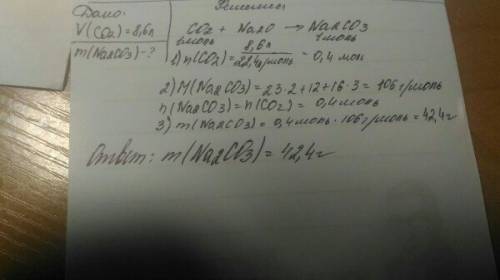 Дано:
V(CO2)=8,6л
m(Na2CO3)-?
Решение
CO2 + Na2O → Na2CO3
1моль 1моль
1) n(CO2)= 8,6л / 22,4л/моль = 0,4 мол
2) M(Na2CO3)=23·2+12+16·3=106г/моль
n(Na2CO3)=n(CO2)= 0,4моль
3) m(Na2CO3)=0,4моль·106г/моль=42,4г
Ответ: m(Na2CO3)=42,4г